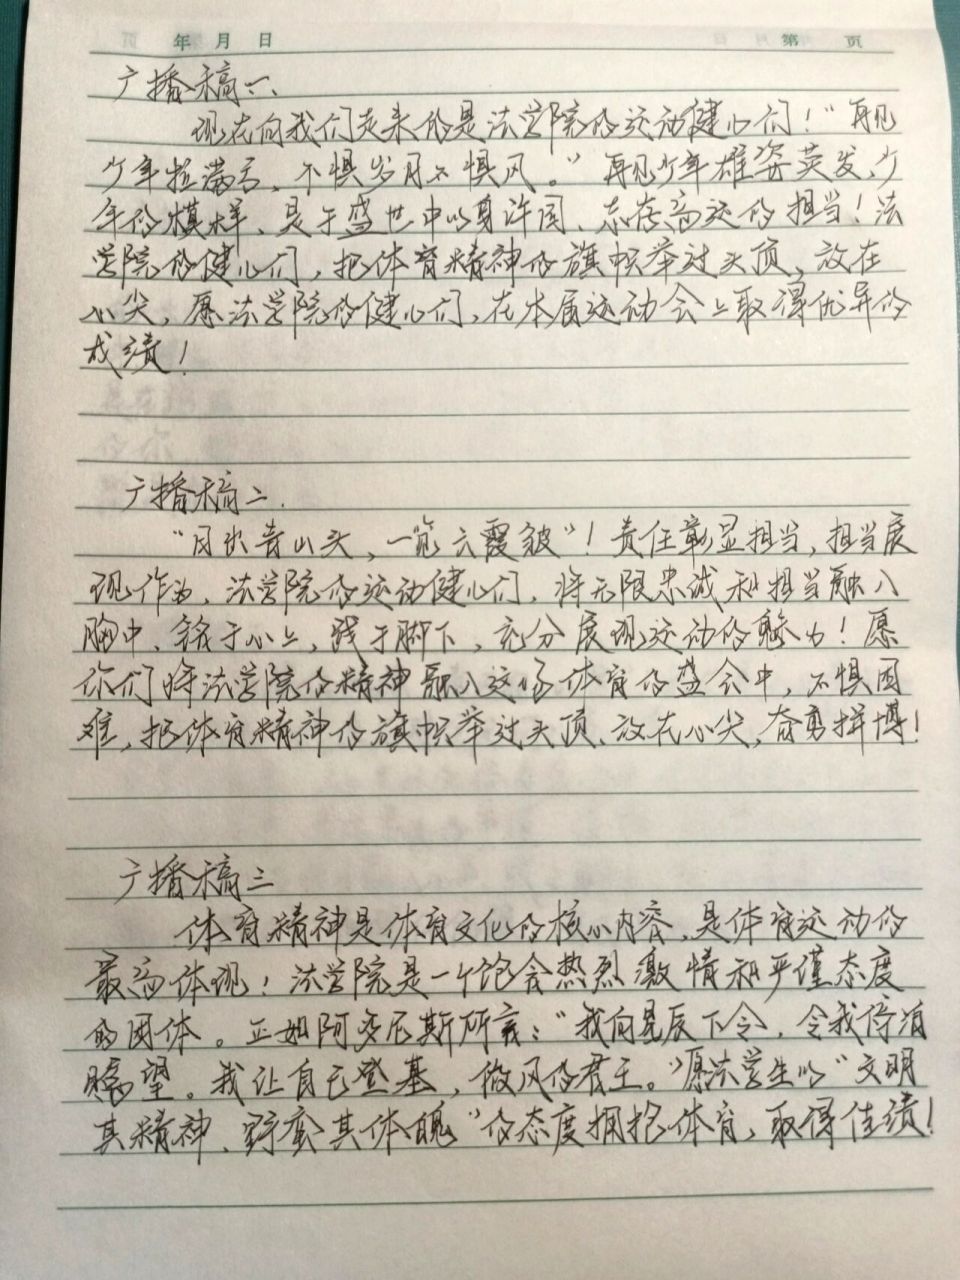 年 月 日 第 页
广播稿一、
现在向我们走来的是法学院的运动健儿们！“再见
少年拉满弓，不惧岁月不惧风。”再见少年雄姿英发，少
年的模样，是于盛世中以身许国、志存高远的担当！法
学院的健儿们，把体育精神的旗帜举过头顶，放在
心尖，愿法学院的健儿们，在本届运动会上取得优异的
成绩！
广播稿二．
“月出青山头，一览云霞皱”！责任彰显担当，担当展
现作为，法学院的运动健儿们，将无限忠诚和担当融入
胸中，铭于心上，践于脚下，充分展现运动的魅力！愿
你们将法学院的精神融入这场体育的盛会中，不惧困
难，把体育精神的旗帜举过头顶、放在心尖，奋勇拼搏！
广播稿三
体育精神是体育文化的核心内容，是体育运动的
最高体现！法学院是一个饱含热烈激情和严谨态度
的团体。正如阿多尼斯所言：“我向星辰下令，令我停泊
瞩望。我让自己登基，做风的君王。”愿法学生以“文明
其精神、野蛮其体魄”的态度拥抱体育，取得佳绩！